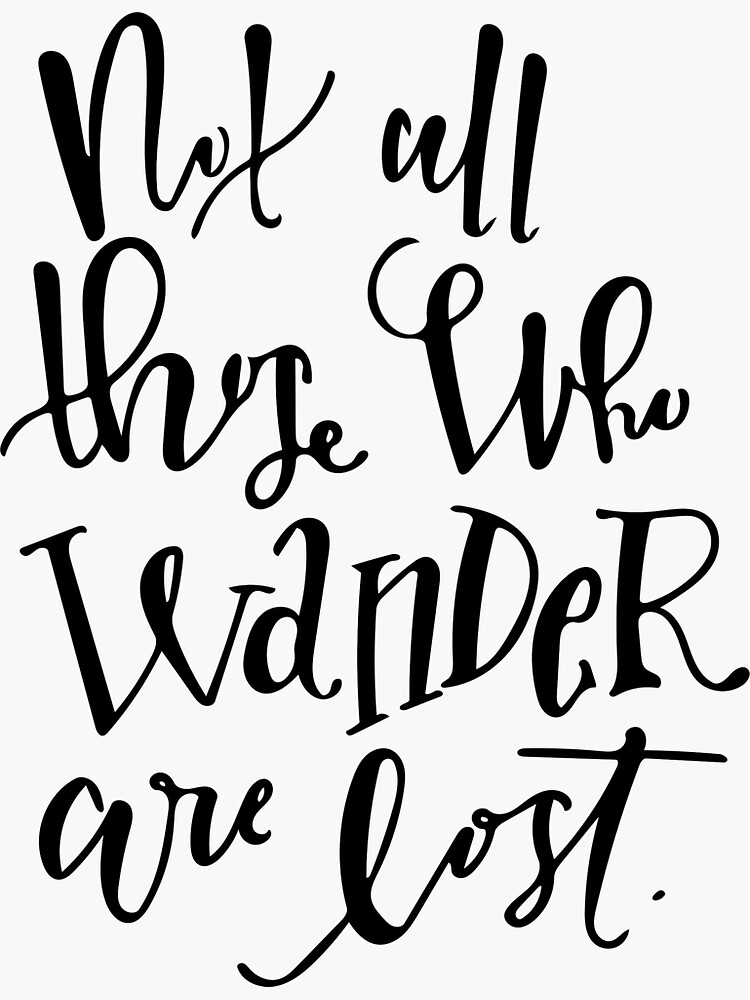 Not all
those Who
WANDER
are lost.